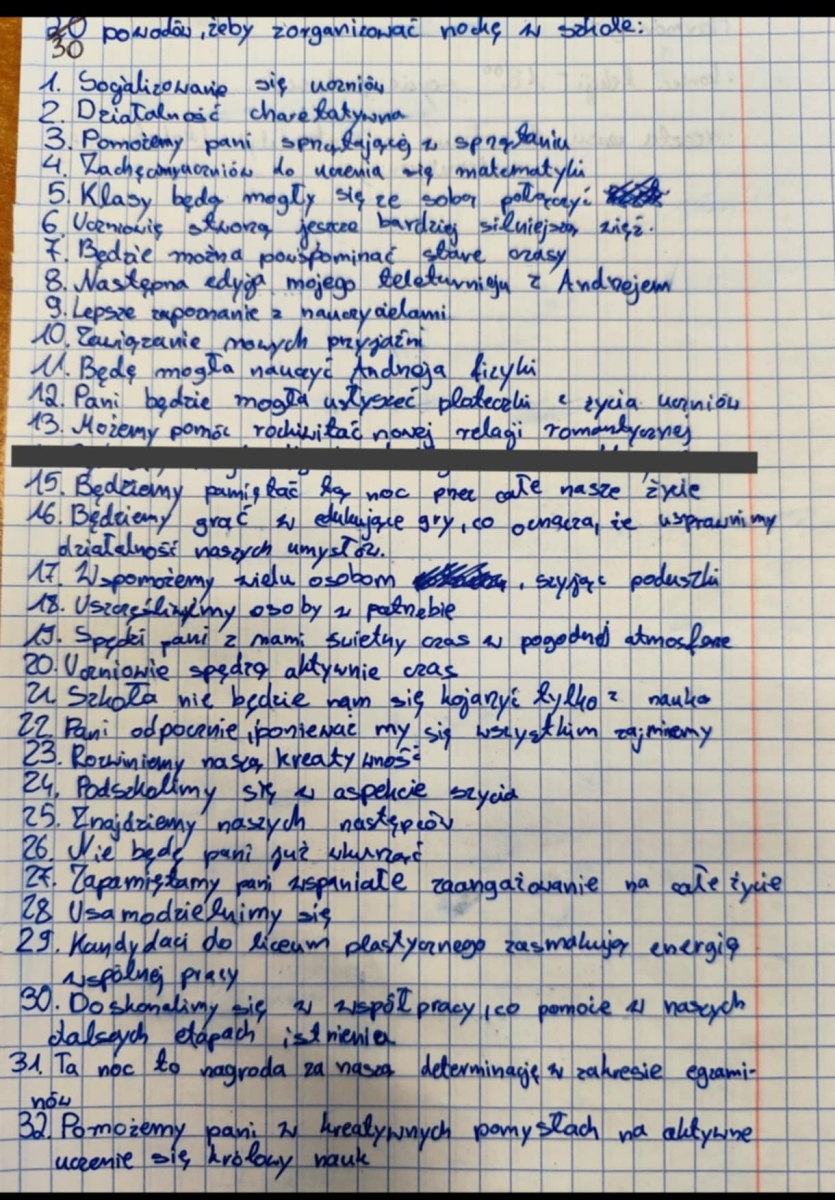 30 powodów, żeby zorganizować nockę w szkole:
1. Socjalizowanie się uczniów
2. Działalność charetatywna
3. Pomożemy pani sprzątającej w sprzątaniu
4. Zachęcimy uczniów do uczenia się matematyki
5. Klasy będą mogły się ze sobą połączyć
6. Uczniowie stworzą jeszcze bardziej silniejszą więź.
7. Będzie można powspominać stare czasy
8. Następna edycja mojego teleturnieju z Andrzejem
9. Lepsze zapoznanie z nauczycielami
10. Zawiązanie nowych przyjaźni
11. Będę mogła nauczyć Andrzeja fizyki
12. Pani będzie mogła usłyszeć ploteczki z życia uczniów
13. Możemy pomóc rozkwitać nowej relacji romantycznej
15. Będziemy pamiętać tą noc przez całe nasze życie
16. Będziemy grać w edukujące gry, co oznacza, że usprawnimy
działalność naszych umysłów.
17. Wspomożemy wielu osobom , szyjąc poduszki
18. Uszczęśliwimy osoby w potrzebie
19. Spędzi pani z nami świetny czas w pogodnej atmosferze
20. Uczniowie spędzą aktywnie czas
21. Szkoła nie będzie nam się kojarzyć tylko z nauką
22. Pani odpocznie, ponieważ my się wszystkim zajmiemy
23. Rozwiniemy naszą kreatywność
24. Podszkolimy się w aspekcie szycia
25. Znajdziemy naszych następców
26. Nie będę pani już wkurzać
27. Zapamiętamy pani wspaniałe zaangażowanie na całe życie
28 Usamodzielnimy się
29. Kandydaci do liceum plastycznego zasmakują energię
wspólnej pracy
30. Doskonalimy się w współpracy, co pomoże w naszych
dalszych etapach istnienia
31. Ta noc to nagroda za naszą determinację w zakresie egzami-
nów
32. Pomożemy pani w kreatywnych pomysłach na aktywne
uczenie się królowy nauk